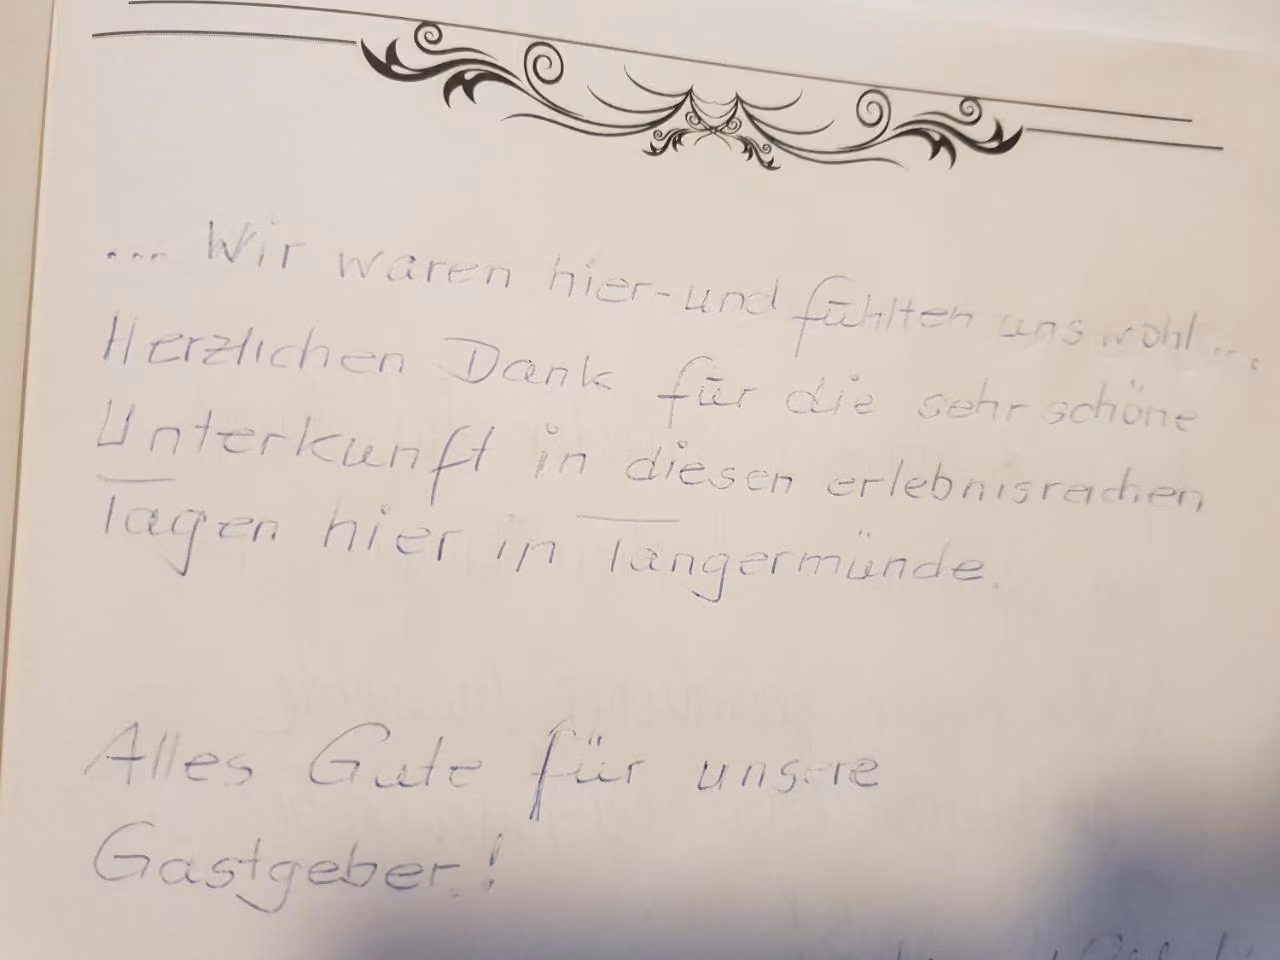 ... Wir waren hier - und fühlten uns wohl ...
Herzlichen Dank für die sehr schöne
Unterkunft in diesen erlebnisreichen
Tagen hier in Tangermünde.
Alles Gute für unsere
Gastgeber!